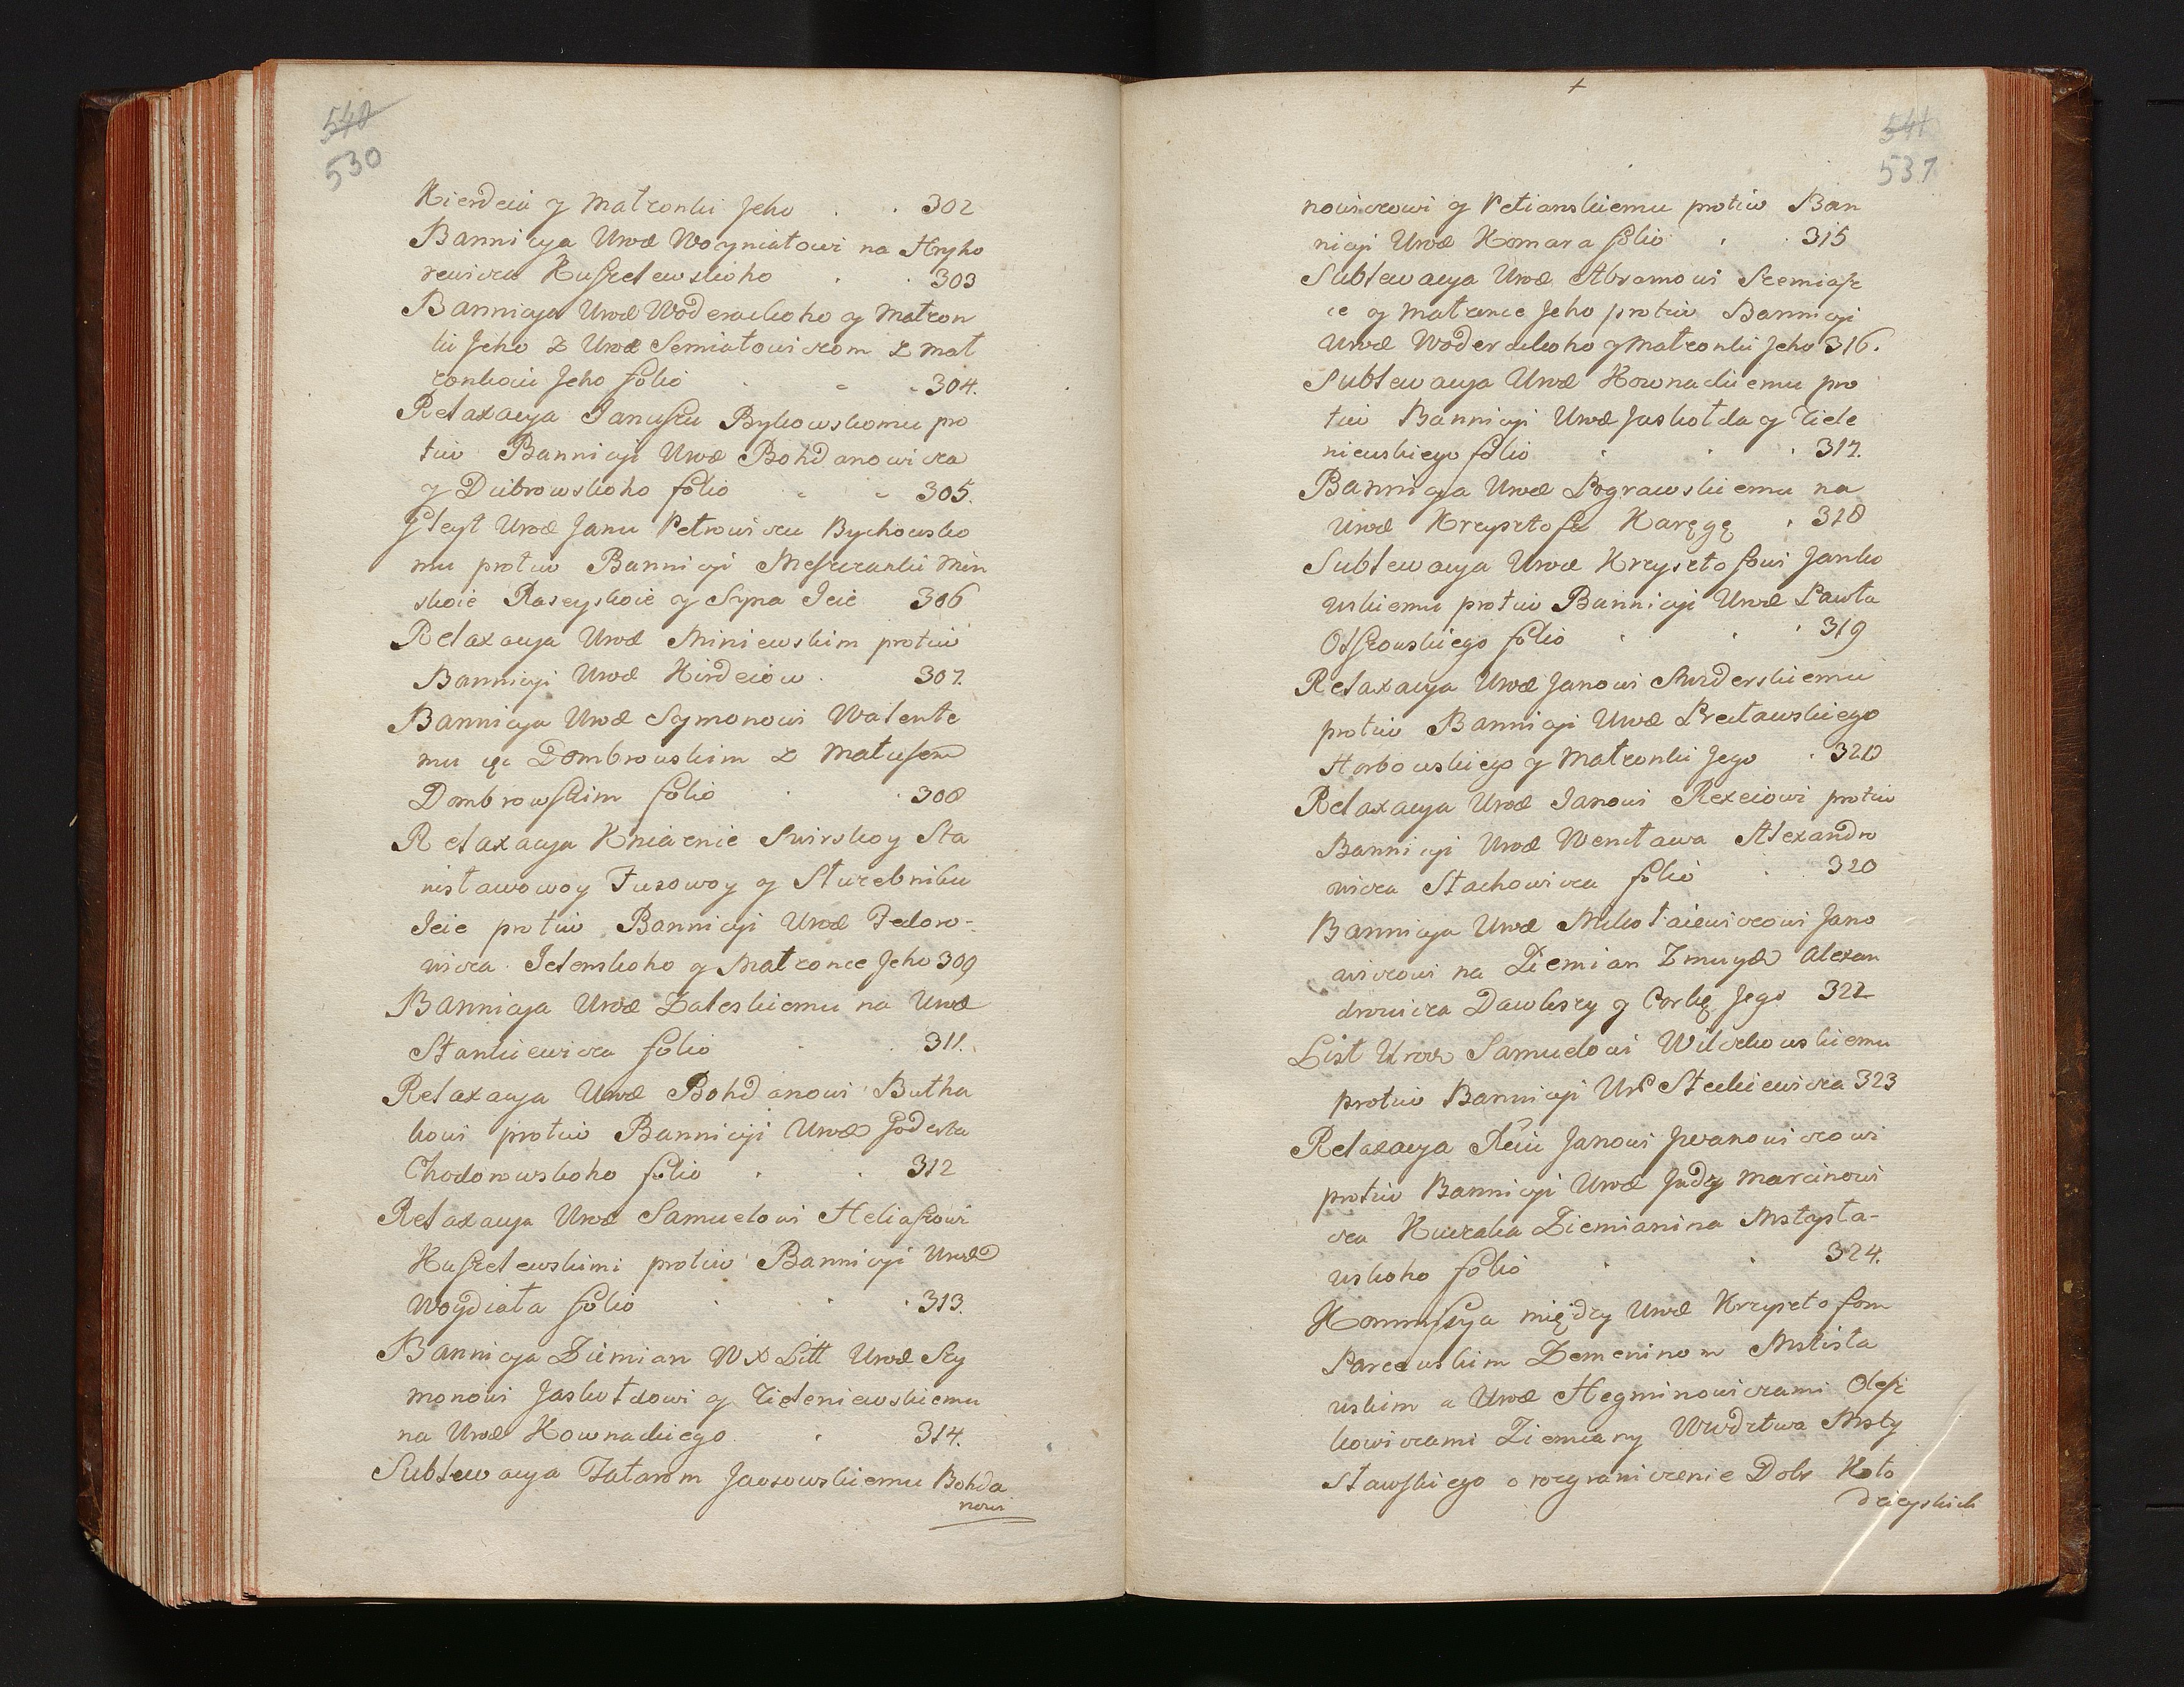 540
530
Kierdeia y Małżonki Jeho . . 302
Bannicya Urod Woyniatowi na Hryho
rewicza Kuszelewskoho . . 303
Bannicya Urod Woderackoho y Małżon
ki Jeho z Urod Semiatowiczom z Mał
żonkoiu Jeho folio . - - 304.
Relaxacya Januszu Bykowskomu pro
tiw Bannicyi Urod Bohdanowicza
y Dubrowskoho folio - - 305.
Gleyt Urod Janu Petrowiczu Bychowsko
mu protiw Bannicyi Meszczanki Min
skoie Raseyskoie y Syna Jeie 306
Relaxacya Urod Miniewskim protiw
Bannicyi Urod Kirdeiow . 307.
Bannicya Urod Symonowi Walente
mu etc Dombrowskim z Matusem
Dombrowskim folio . . 308
Relaxacya Kniaznie Swirskoy Sta
nisławowoy Fusowoy y Służebniku
Jeie protiw Bannicyi Urod Fedoro-
wicza Jelenskoho y Małżonce Jeho 309
Bannicya Urod Zaleskiemu na Urod
Stankiewicza folio . . 311.
Relaxacya Urod Bohdanowi Butha
kowi protiw Bannicyi Urod Godesta
Chodorowskoho folio . . 312
Relaxacya Urod Samuelowi Heliaszowi
Kuszelewskimi protiw Bannicyi Urod
Woydiata folio . . . 313.
Bannicya Ziemian W X Litt Urod Szy
monowi Jaskołdowi y Zieleniewskiemu
na Urod Kownackiego . 314.
Sublewacya Tatarom Jaosowskiemu Bohda
nowi
+
541
531
nowiczowi y Petianskiemu protiw Ban
nicyi Urod Komara folio . . 315
Sublewacya Urod Abramowi Szemiasz
ce y Małżonce Jeho protiw Bannicyi
Urod Woderackoho y Małżonki Jeho 316.
Sublewacya Urod Kownackiemu pro
tiw Bannicyi Urod Jaskołda y Ziele
niewskiego folio . . . 317.
Bannicya Urod Pograwskiemu na
Urod Krzysztofa Karęgę . 318
Sublewacya Urod Krzysztofowi Janko
wskiemu protiw Bannicyi Urod Pawła
Olszowskiego folio . . . 319
Relaxacya Urod Janowi Swiderskiemu
protiw Bannicyi Urod Precławskiego
Horbowskiego y Małżonki Jego . 320
Relaxacya Urod Janowi Rexeiowi protiw
Bannicyi Urod Wencława Alexandro
wicza Stachowicza folio . 320
Bannicya Urod Mikołaiewiczowi Jano
wiczowi na Ziemian Zmuydz Alexan
drowicza Dawkszy y Corkę Jego 322
List Urod Samuelowi Wilczkowskiemu
protiw Bannicyi Urod Steckiewicza 323
Relaxacya Xciu Janowi Jwanowiczowi
protiw Bannicyi Urod Jndrz Marcinowi
cza Kuczaka Ziemianina Mstysła-
wskoho folio . . 324.
Kommissya między Urod Krzysztofom
Parcewskim Zemeninom Mstisła
wskim a Urod Hegminowiczami Olesz
kowiczami Ziemiany Wwdztwa Msty
sławskiego o rozgraniczenie Dobr Koło
dzieyskich